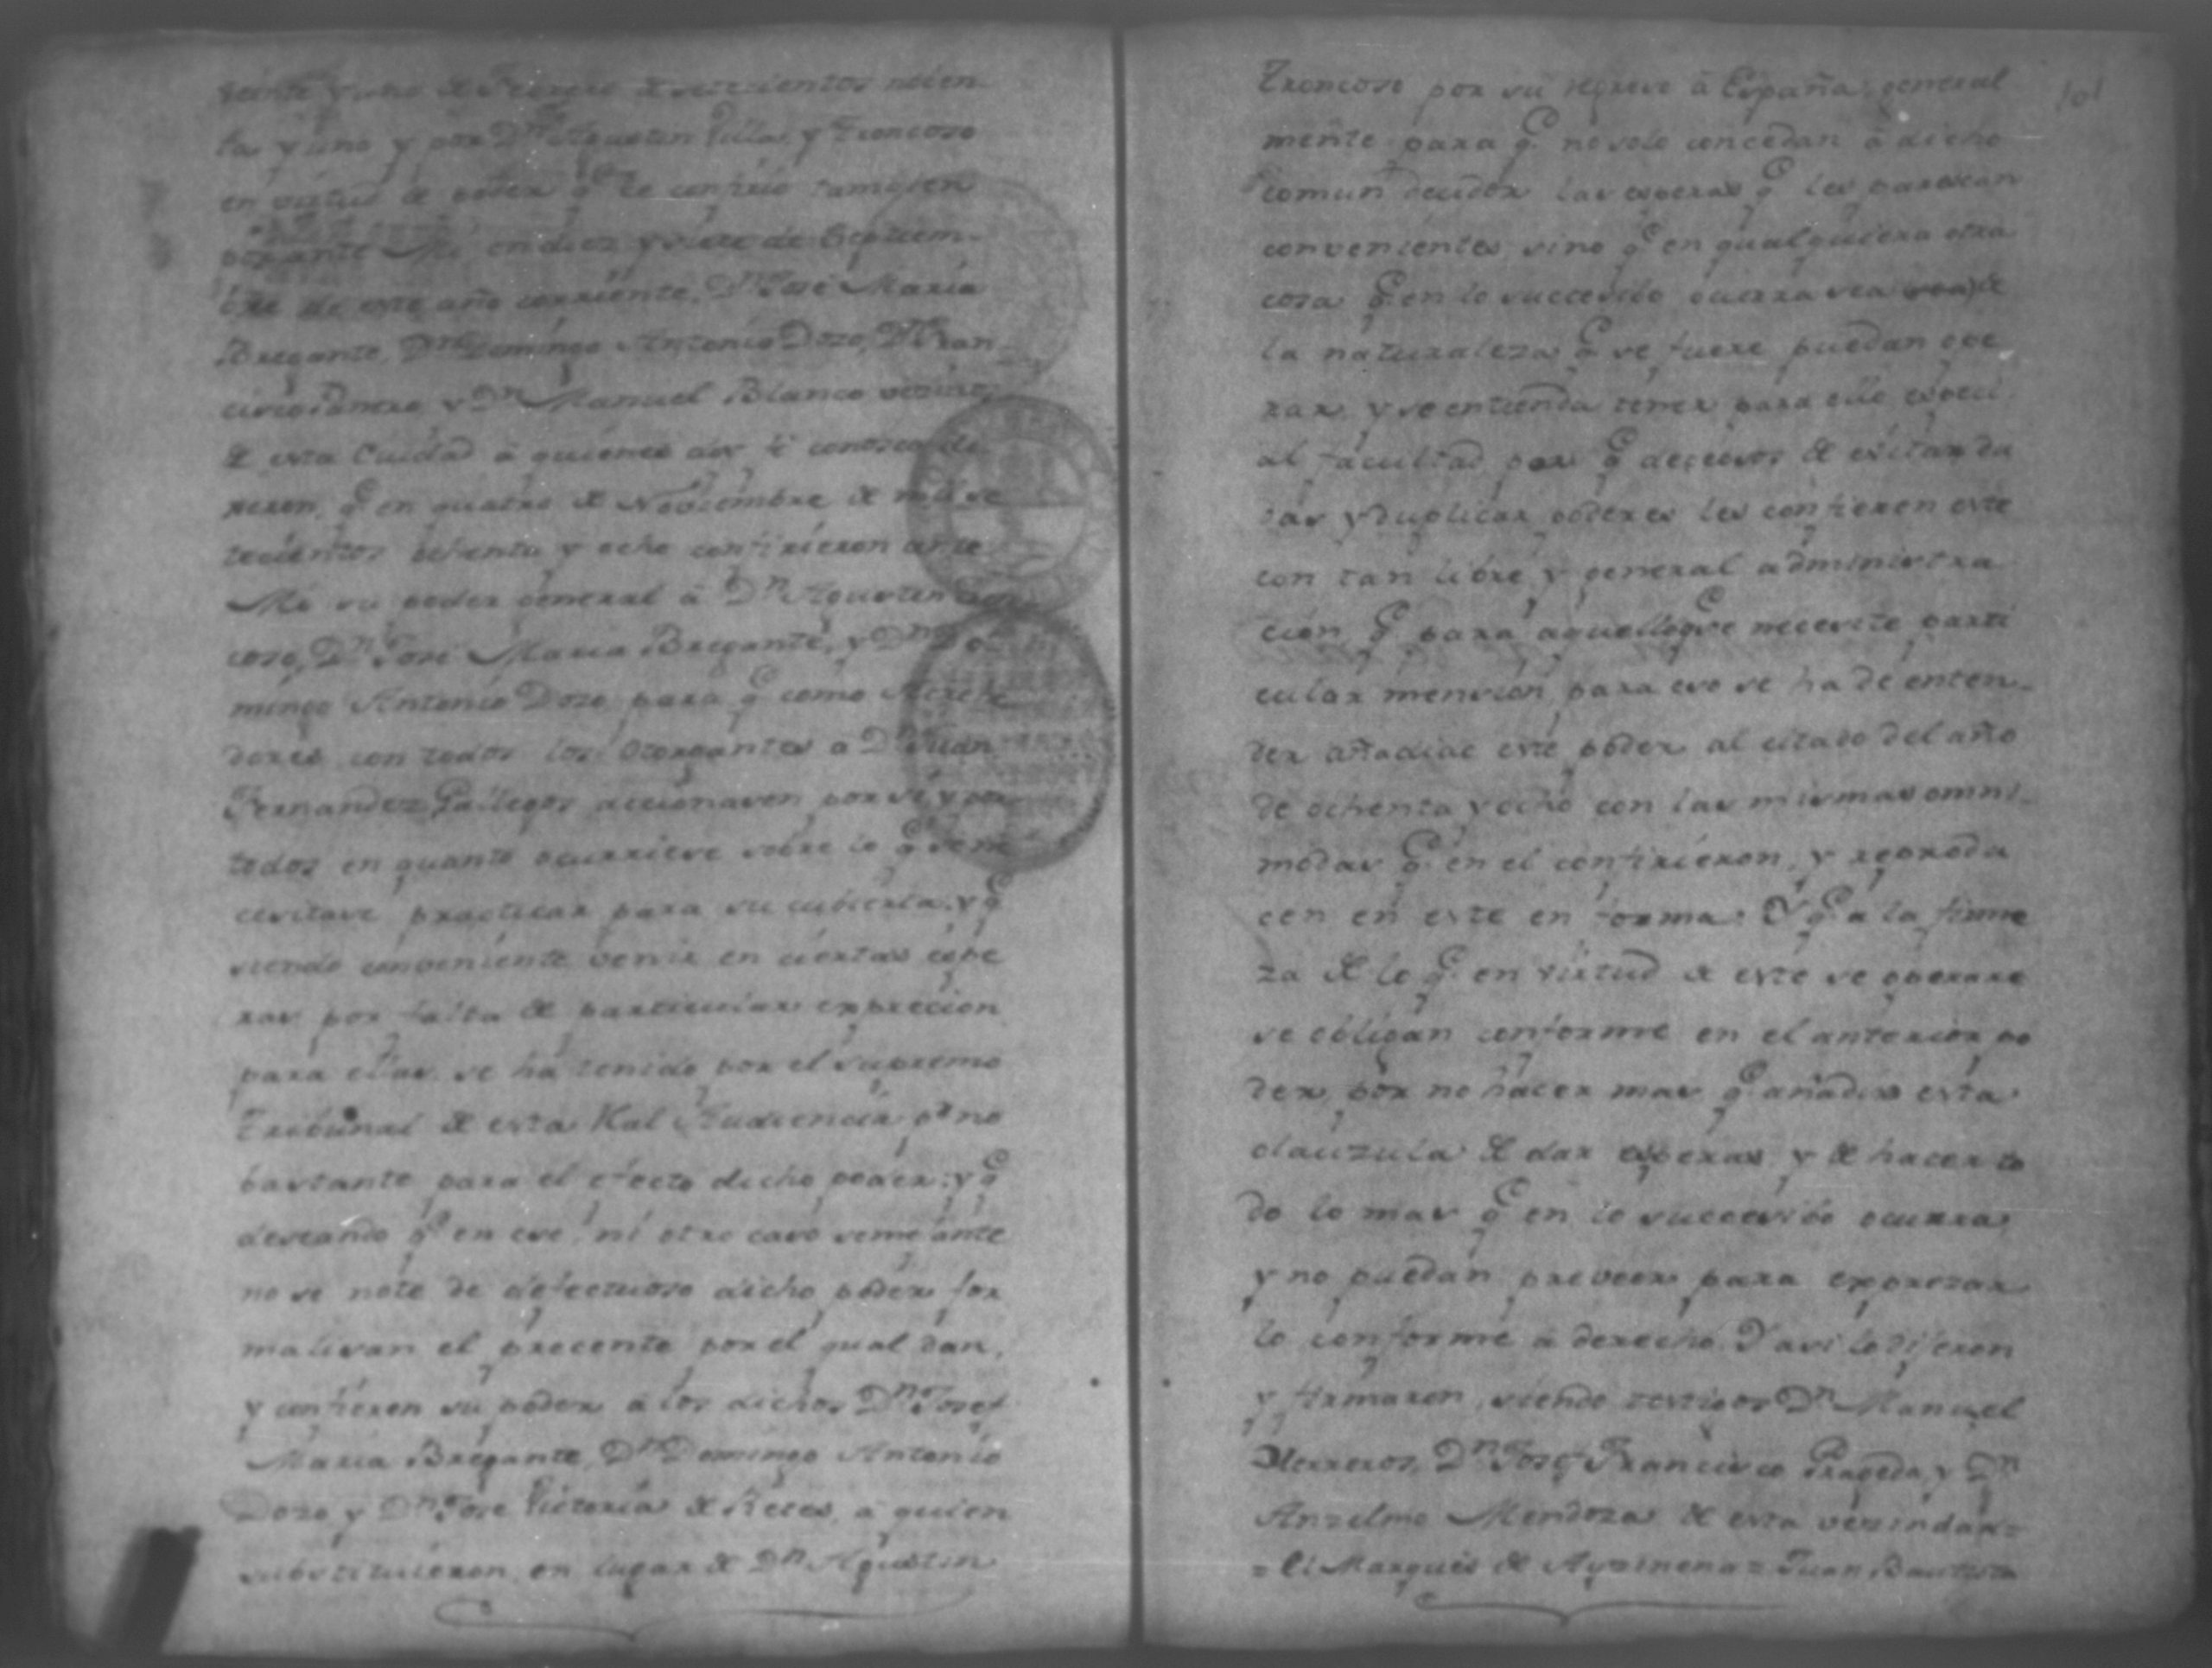 veinte y uno de Febrero de setecientos noven
ta y uno y por Dn Agustin Villa y Troncoso
en virtud de poder q.e le confirió tambien
porante Mi en diez y siete de Septiem-
bre de este año corriente, Dn José Maria
Bregante, Dn Domingo Antonio Dozo, Dn Fran
cisco y Dn Manuel Blanco vecinos
de esta Ciudad à quienes doy fè conosco di
xeron, q.e en quatro de Noviembre de mil se
tecientos ochenta y ocho confirieron ante
Mi su poder general à Dn Agustin
coso, Dn José Maria Bregante, y Dn Do
mingo Antonio Dozo para q.e como Acrehe
dores con todos los Otorgantes a Dn Juan
Fernandez Gallegos accionasen por sì y por
todos en quanto ocurriese sobre lo q.e se ne
cesitase practicar para su cubierta: y q.e
siendo conveniente venir en ciertas espe
ras por falta de particular exprecion
para ellas se ha tenido por el supremo
Tribunal de esta Ral Audiencia pr no
bastante para el efecto dicho poder: y q.e
deseando q.e en ese, ni otro caso semejante
no se note de defectuoso dicho poder for
malisan el precente por el qual dan,
y confieren su poder a los dichos Dn Josef
Maria Bregante, Dn Domingo Antonio
Dozo y Dn Jose Victoria de Retes, a quien
substituieron en lugar de Dn Agustin
101
Troncoso por su regreso à España: general
mente para q.e no solo concedan à dicho
comun deudor las esperas q.e les parescan
convenientes sino q.e en qualquiera otra
cosa q.e en lo succesibo ocurra sea de
la naturaleza q.e se fuere puedan ope
rar, y se entienda tener para ello especi
al facultad por q.e deceosos de evitar du
das y duplicar poderes les confieren este
con tan libre y general administra
cion q.e para aquello que necesite parti
cular mension, para eso se ha de enten-
der añadido este poder al citado del año
de ochenta y ocho con las mismas omni-
modas q.e en el confirieron, y reprodu
cen en este en forma: Y q.e a la firme
za de lo q.e en virtud de este se operare
se obligan conforme en el anterior po
der, por no hacer mas q.e añadir esta
clauzula de dar esperas y de hacer to
do lo mas q.e en lo succesibo ocurra,
y no puedan preveer para exprezar
lo conforme à derecho. Y asi lo dijeron
y firmaron, siendo testigos Dn Manuel
Herreros, Dn Josef Francisco Prageda, y Dn
Anzelmo Mendoza de esta vecindad=
= El Marques de Aycinena = Juan Bautista